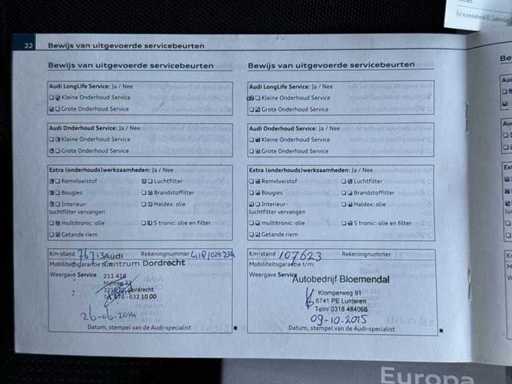 22 Bewijs van uitgevoerde servicebeurten
Bewijs van uitgevoerde servicebeurten
Audi LongLife Service: Ja / Nee
Kleine Onderhoud Service
Grote Onderhoud Service
Audi Onderhoud Service: Ja / Nee
Kleine Onderhoud Service
Grote Onderhoud Service
Extra (onderhouds)werkzaamheden: Ja / Nee
Remvloeistof
Luchtfilter
Bougies
Brandstoffilter
Interieur-
luchtfilter vervangen
Haldex: olie
multitronic: olie
S tronic: olie en filter
Getande riem
Km-stand
Audi
Rekeningnummer
Mobiliteitsgarantie
Centrum Dordrecht
Weergave Service
26-06-2014
Datum, stempel van de Audi-specialist
Bewijs van uitgevoerde servicebeurten
Bewijs van uitgevoerde servicebeurten
Audi LongLife Service: Ja / Nee
Kleine Onderhoud Service
Grote Onderhoud Service
Audi Onderhoud Service: Ja / Nee
Kleine Onderhoud Service
Grote Onderhoud Service
Extra (onderhouds)werkzaamheden: Ja / Nee
Remvloeistof
Luchtfilter
Bougies
Brandstoffilter
Interieur-
luchtfilter vervangen
Haldex: olie
multitronic: olie
S tronic: olie en filter
Getande riem
Km-stand 107623
Rekeningnummer
Mobiliteitsgarantie t/m:
Weergave Service
Autobedrijf Bloemendal
Klomperweg 91
6741 PE Lunteren
09-10-2015
Datum, stempel van de Audi-specialist
Europa